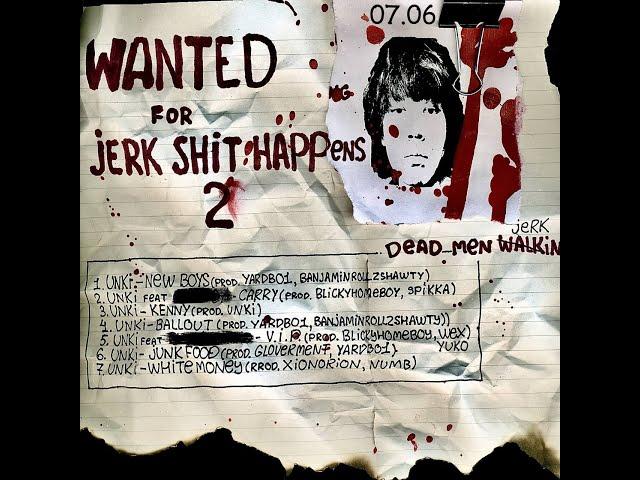 07.06
WANTED
FOR
JERK SHIT HAPPENS
2
NG
jeRK
DEAD MEN WALKIN
1. UNKi - NEW BOYS (PROD. YARDBO1, BANJAMINROLLZSHAWTY)
2. UNKi FEAT - CARRY (PROD. BLICKYHOMEBOY, 9PIKKA)
3. UNKi - KENNY (PROD. UNKi)
4. UNKi - BALLOUT (PROD. YARDBO1, BANJAMINROLLZSHAWTY)
5. UNKi FEAT - V.I.P. (PROD. BLICKYHOMEBOY, WEX)
6. UNKi - JUNK FOOD (PROD. GLOVERMENT, YARDBO1) YUKO
7. UNKi - WHITE MONEY (RROD. XiONORiON, NUMB)